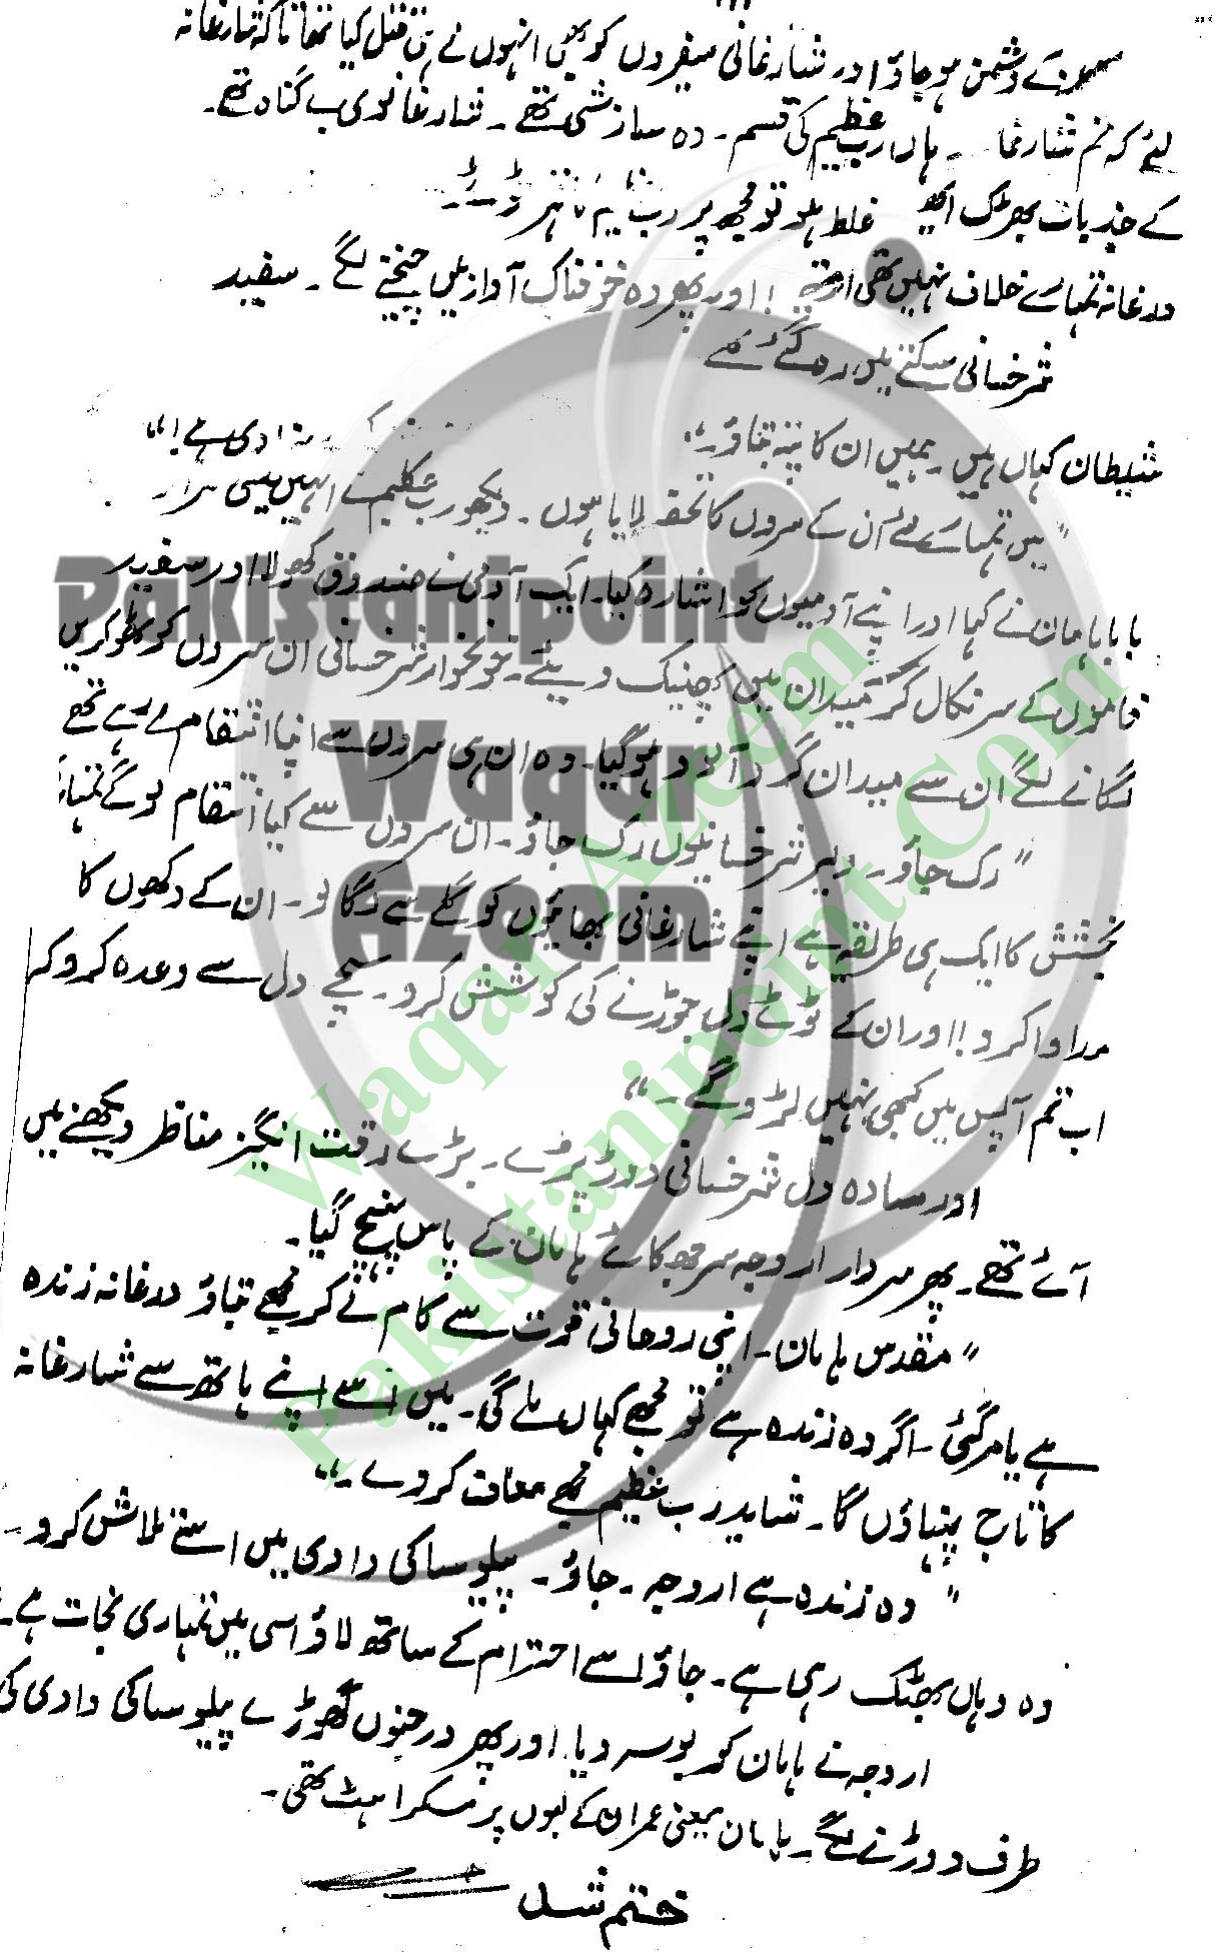 کے دشمن ہو جاؤ اور شارغانی سفیروں کو بھی انہوں نے ہی قتل کیا تھا تاکہ شارغانہ
لئے کہ تم شارغا ۔ ہاں رب عظیم کی قسم۔ وہ سازشی تھے۔ شارغانوی بے گناہ تھے۔
کے جذبات بھڑک اٹھے غلط ہو تو مجھ پر رب کا قہر ٹوٹے۔
مدغانہ تمہارے خلاف نہیں تھی !! اور پھر وہ خوفناک آواز میں چیخنے لگے۔ سفید
شرخسانی سکتے میں رہ گئے تھے
شیطان کہاں ہیں۔ ہمیں ان کا پتہ بتاؤ۔" دی ہے!"
"میں تمہارے لئے ان کے سروں کا تحفہ لایا ہوں۔ دیکھو رب عظیم نے انہیں کیسی سزا۔
بابا ہامان نے کہا اور اپنے آدمیوں کو اشارہ کیا۔ ایک آدمی نے صندوق کھولا اور سفید
فاموں کے سر نکال کر میدان میں پھینک دیئے۔ خونخوار شرخسانی ان سروں کو ٹھوکریں
لگانے لگے ان سے میدان گرد آلود ہو گیا۔ وہ ان ہی سروں سے اپنا انتقام لے رہے تھے
"رک جاؤ۔ دلیر شرخسانیوں رک جاؤ۔ ان سروں سے کیا انتقام لو گے تمہاری
بخشش کا ایک ہی طریقہ ہے اپنے شارغانی بھائیوں کو گلے سے لگا لو۔ ان کے دکھوں کا
مداوا کرو!! اور ان کے ٹوٹے دل جوڑنے کی کوشش کرو۔ سچے دل سے وعدہ کرو کہ
اب تم آپس میں کبھی نہیں لڑو گے۔"
اور سادہ دل شرخسانی دوڑ پڑے۔ بڑے رقت انگیز مناظر دیکھنے میں
آئے تھے۔ پھر سردار اروجہ سر جھکائے ہامان کے پاس پہنچ گیا۔
"مقدس ہامان۔ اپنی روحانی قوت سے کام لے کر مجھے بتاؤ مدغانہ زندہ
ہے یا مر گئی۔ اگر وہ زندہ ہے تو مجھے کہاں ملے گی۔ میں اسے اپنے ہاتھ سے شارغانہ
کا تاج پہناؤں گا۔ شاید رب عظیم مجھے معاف کر دے۔"
"وہ زندہ ہے اروجہ۔ جاؤ۔ پیلوساکی وادی میں اسے تلاش کرو۔
وہ وہاں بھٹک رہی ہے۔ جاؤ اسے احترام کے ساتھ لاؤ اسی میں تمہاری نجات ہے۔"
اروجہ نے ہامان کو بوسہ دیا اور پھر درجنوں گھوڑے پیلوساکی وادی کی
طرف دوڑنے لگے۔ ہامان یعنی عمران کے لبوں پر مسکراہٹ تھی۔
ختم شد
Pakistanipoint
Waqar
Azeem
Waqar Azeem
Pakistanipoint.Com